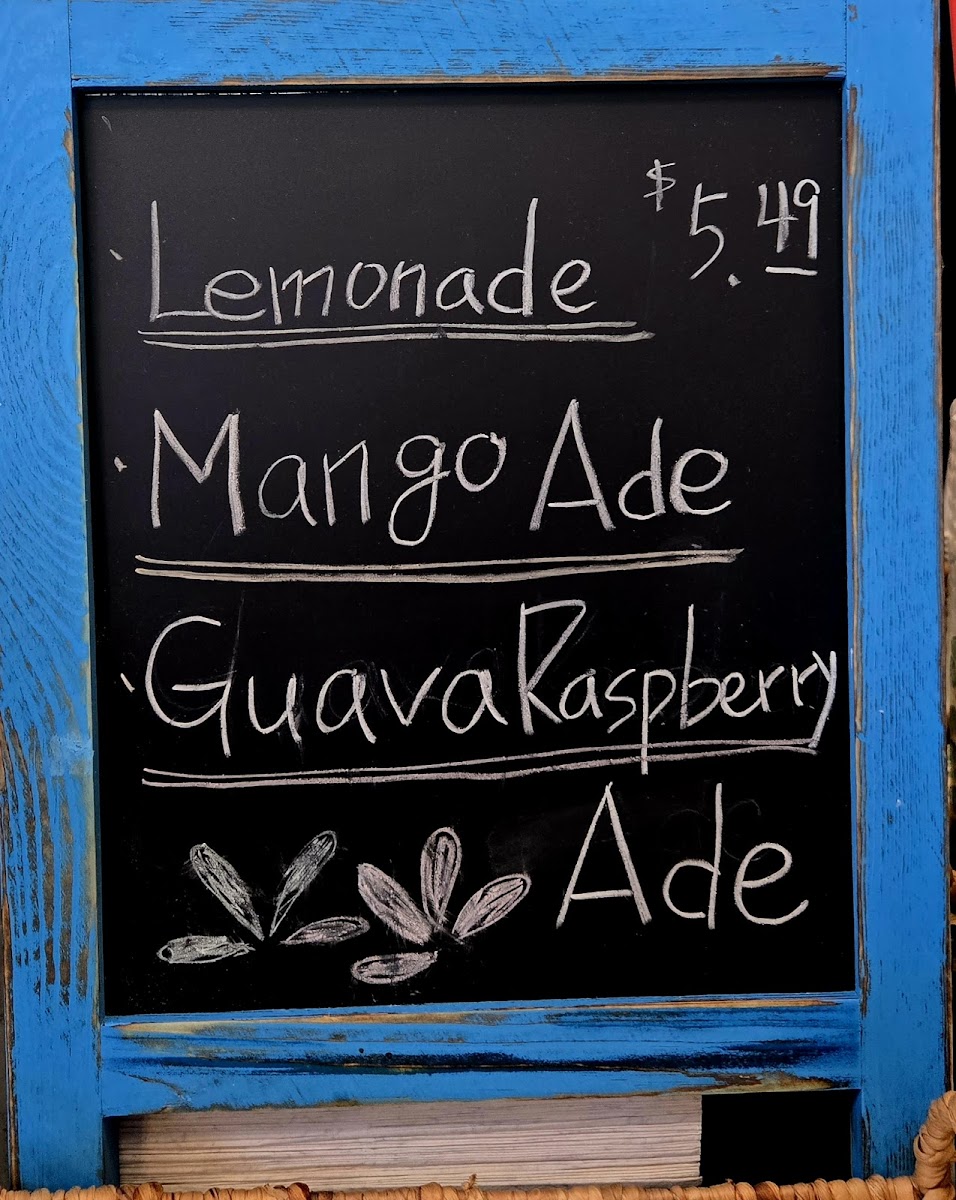 $5.49
Lemonade
Mango Ade
Guava Raspberry
Ade